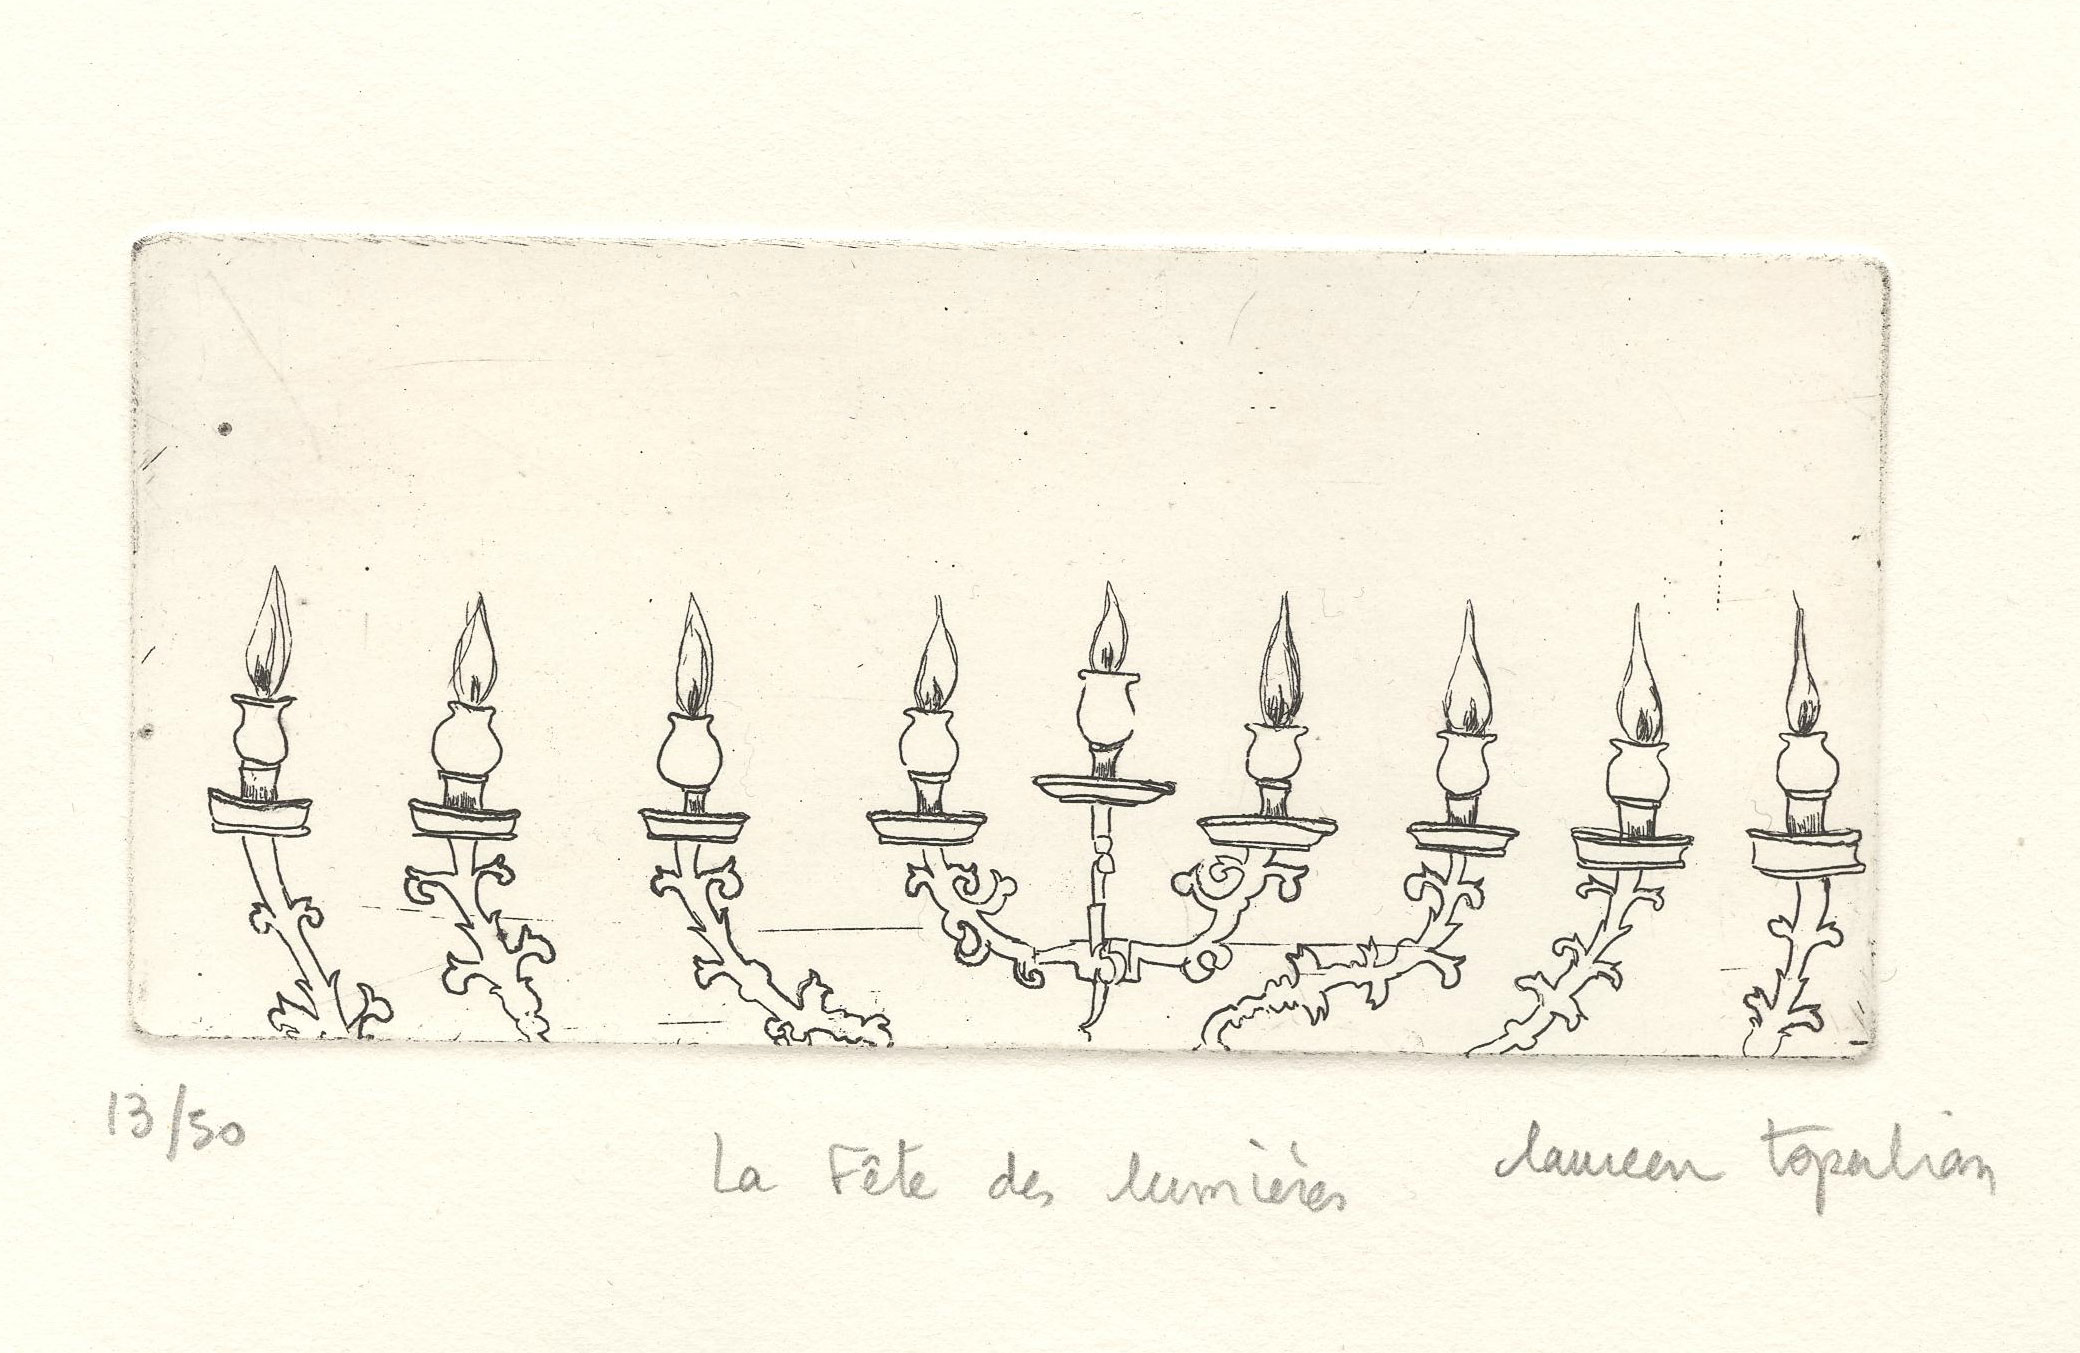 13/50
La Fête des lumières
laureen topalian